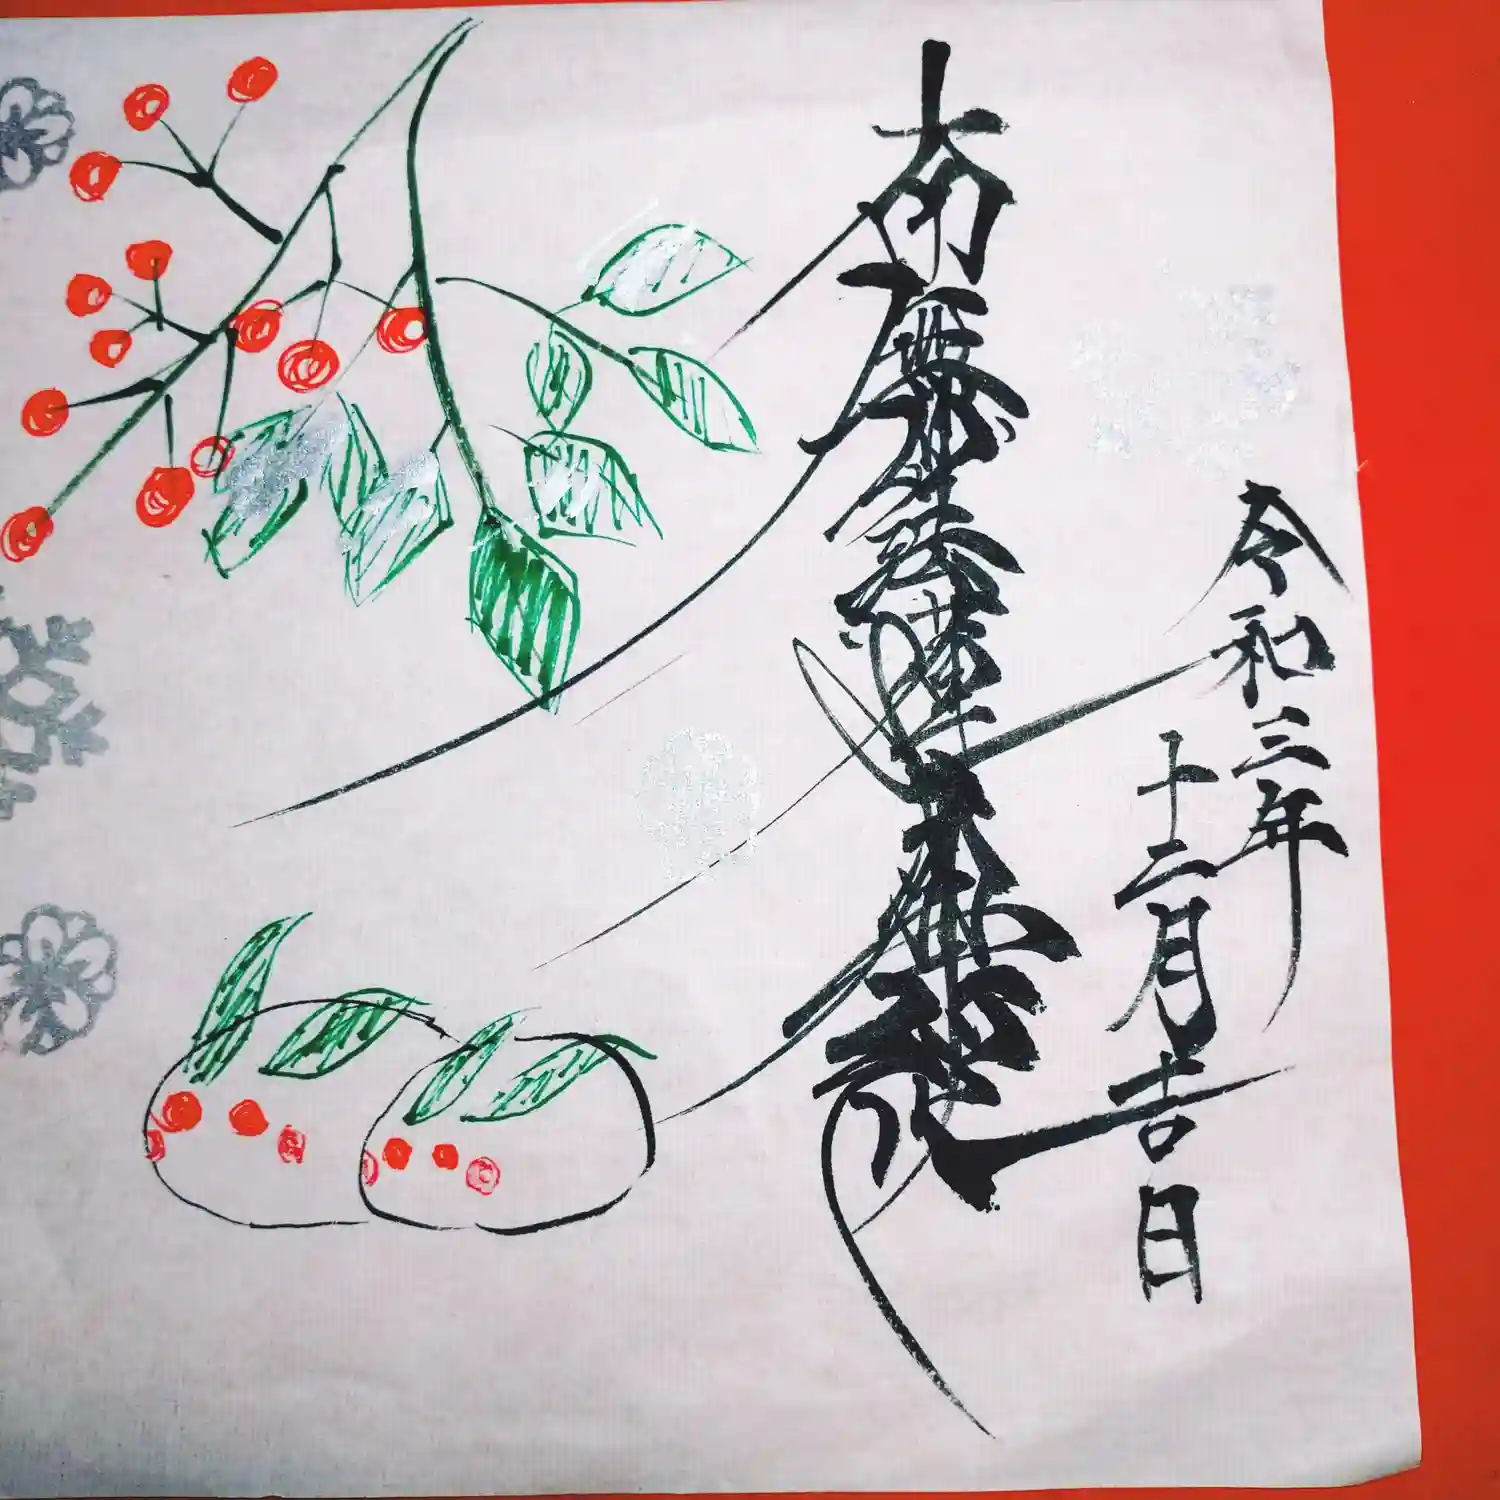 令和三年
十二月吉日
南無妙法蓮華経